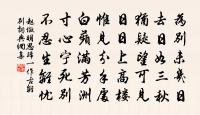 為別未幾日
去日如三秋
猶疑望可見
日日上高樓
惟見分手處
白蘋滿芳洲
寸心寧死別
不忍生離憂
趙徵明思歸一作古離
別詞